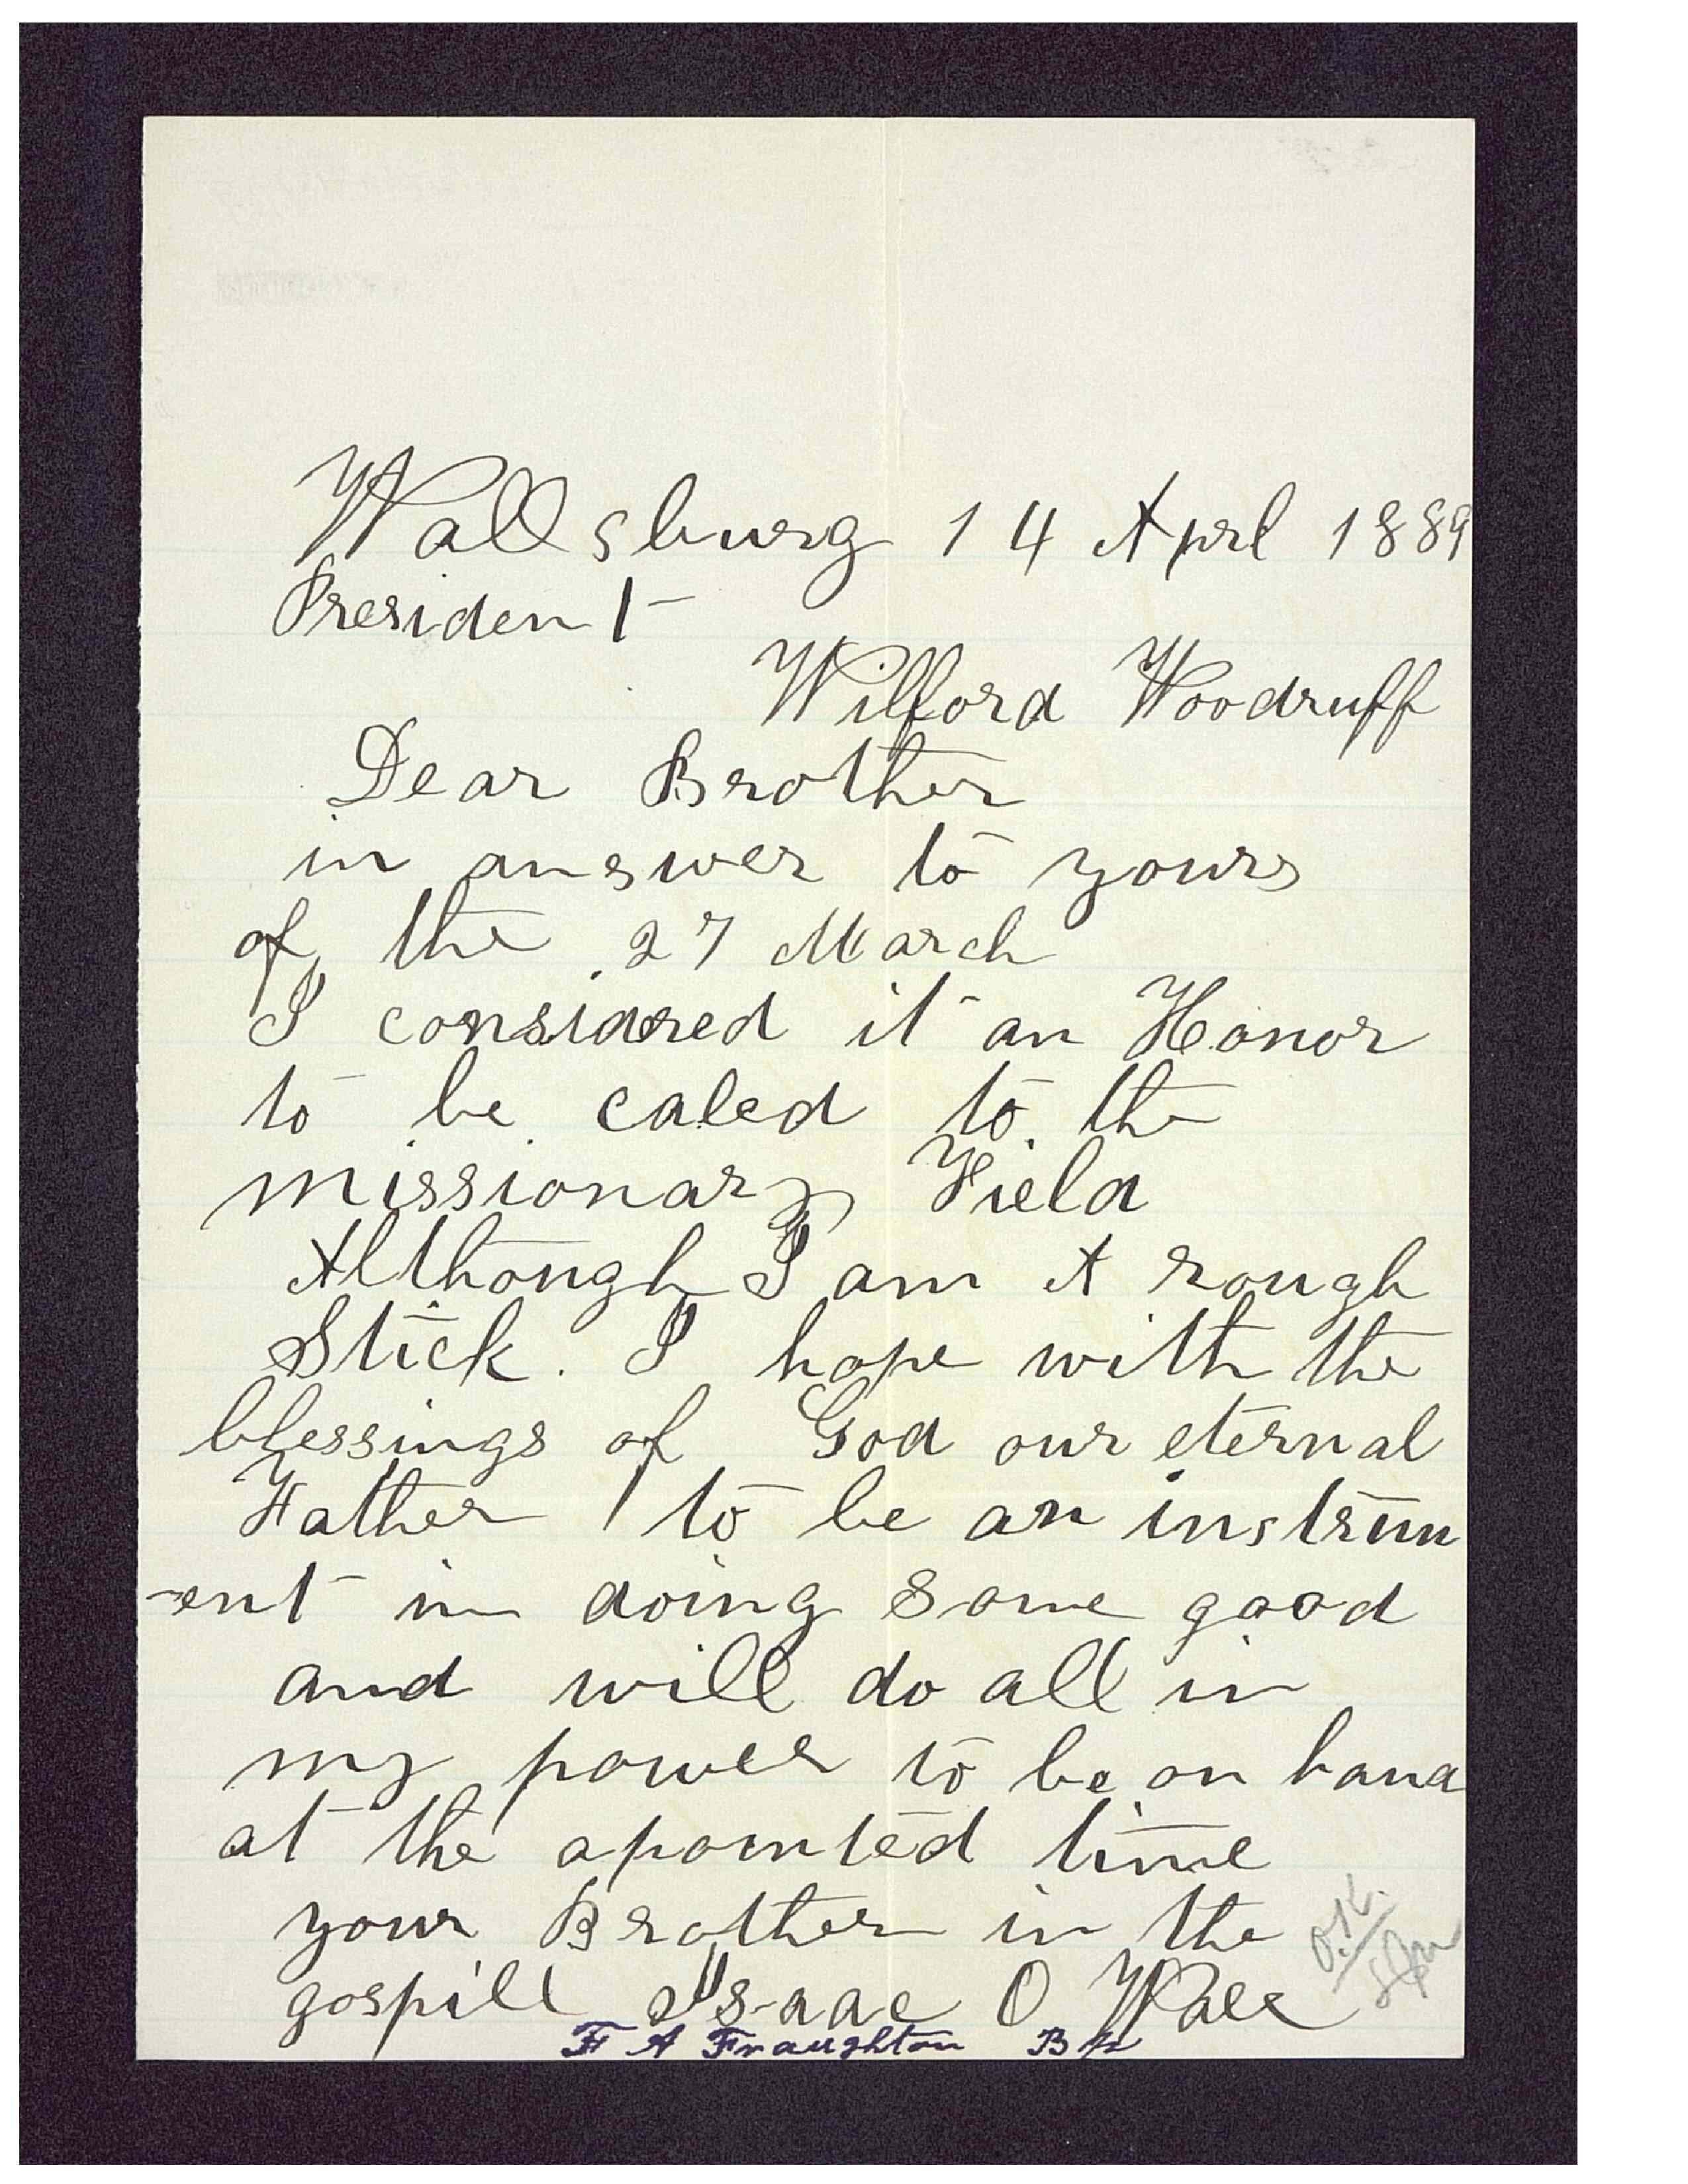 Wallsburg 14 Aprl 1889
President
Wilford Woodruff
Dear Brother
in answer to yours
of the 27 March
I considred it an Honor
to be caled to the
missionary Field
Although I am A rough
Stick. I hope with the
blessings of God our eternal
Father to be an instrum
-ent in doing some good
and will do all in
my power to be on hand
at the apointed time
your Brother in the
gospill Isaac O Wall
F A Fraughton Bp
O.K.